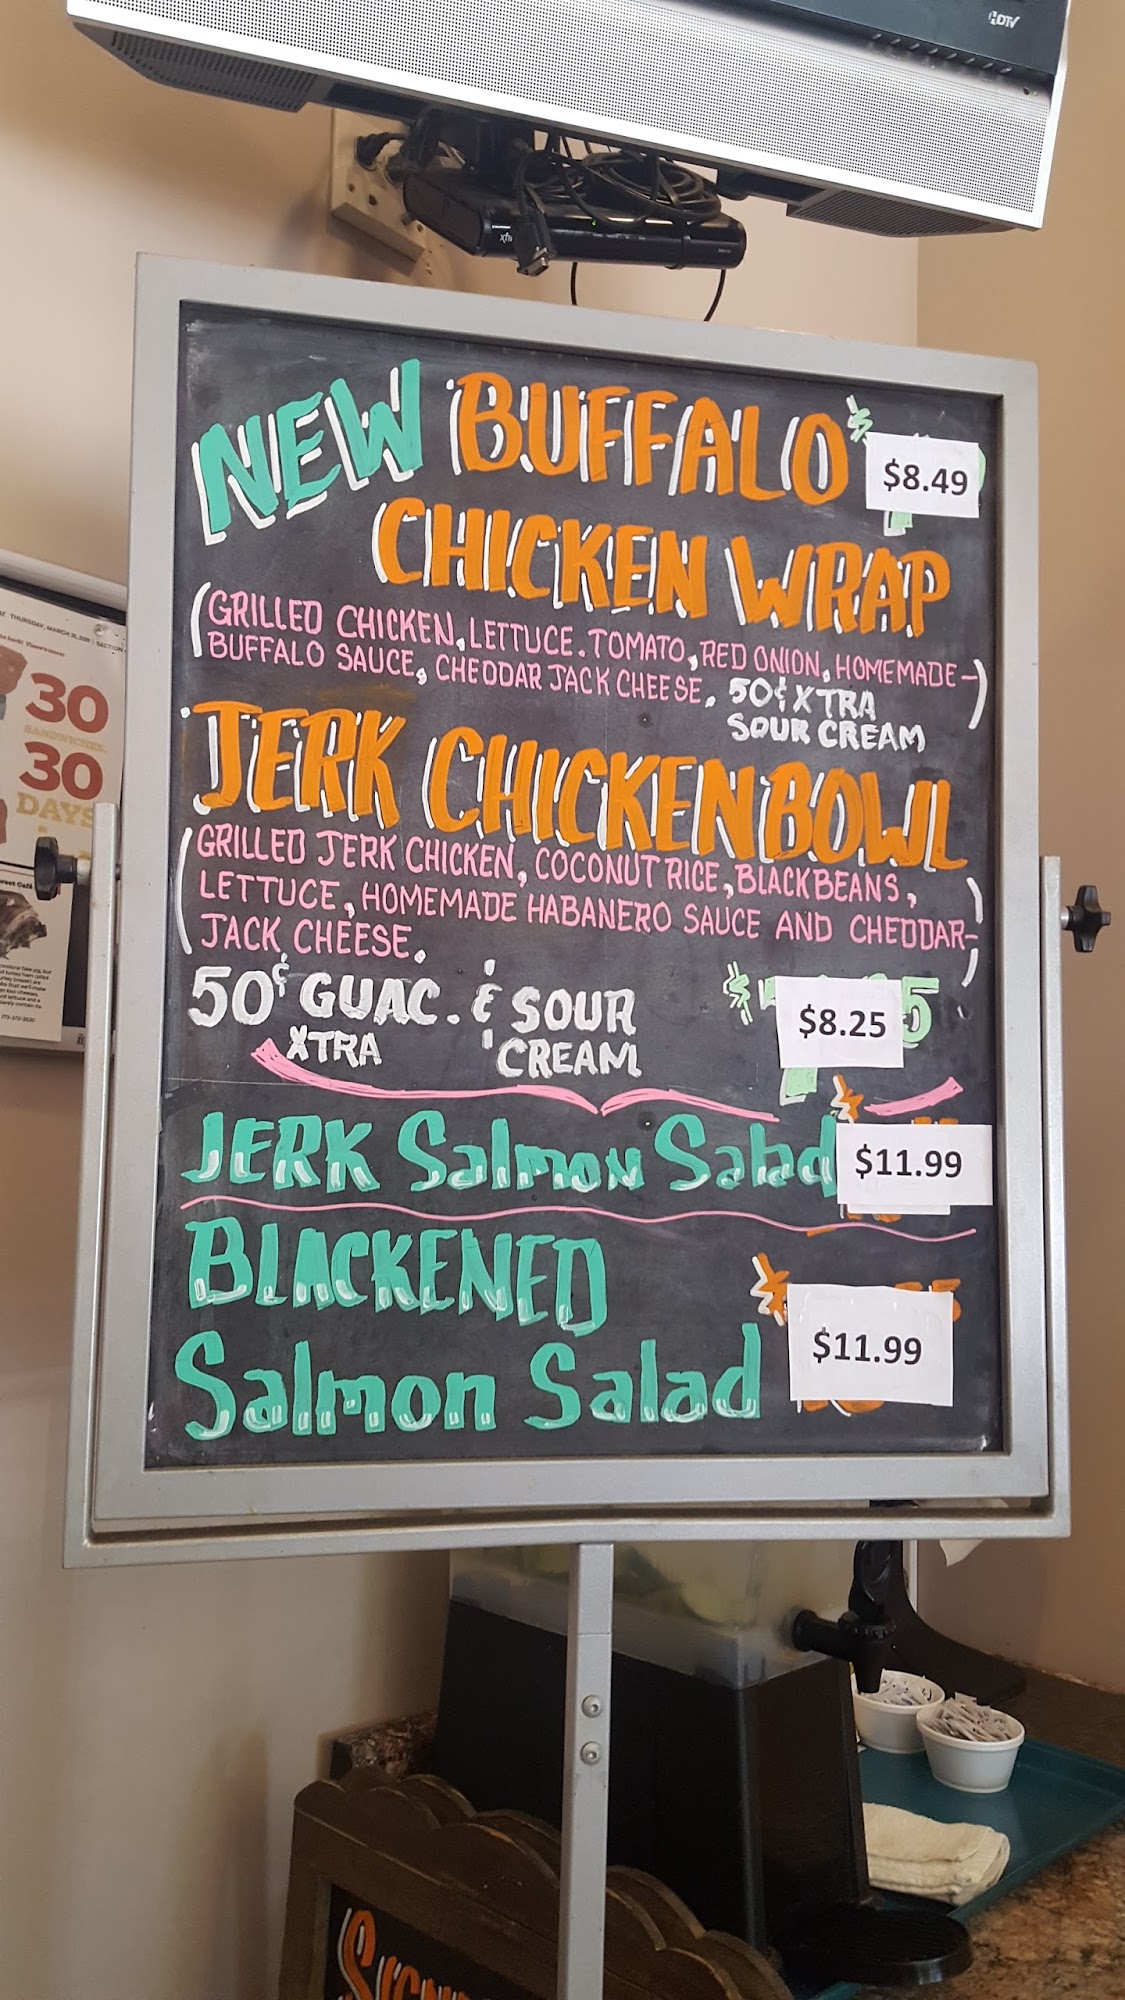 HDTV
NEW BUFFALO $ $8.49
CHICKEN WRAP
(GRILLED CHICKEN, LETTUCE. TOMATO, RED ONION, HOMEMADE-
BUFFALO SAUCE, CHEDDAR JACK CHEESE. 50¢ XTRA)
SOUR CREAM
JERK CHICKEN BOWL
(GRILLED JERK CHICKEN, COCONUT RICE, BLACK BEANS,
LETTUCE, HOMEMADE HABANERO SAUCE AND CHEDDAR-
JACK CHEESE.)
50¢ GUAC. & SOUR $ $8.25 5
XTRA CREAM
JERK Salmon Salad $ $11.99
BLACKENED $
Salmon Salad $11.99
THURSDAY, MARCH 31, 2011 | SECTION
30
SANDWICHES.
30
DAYS
773-373-2220